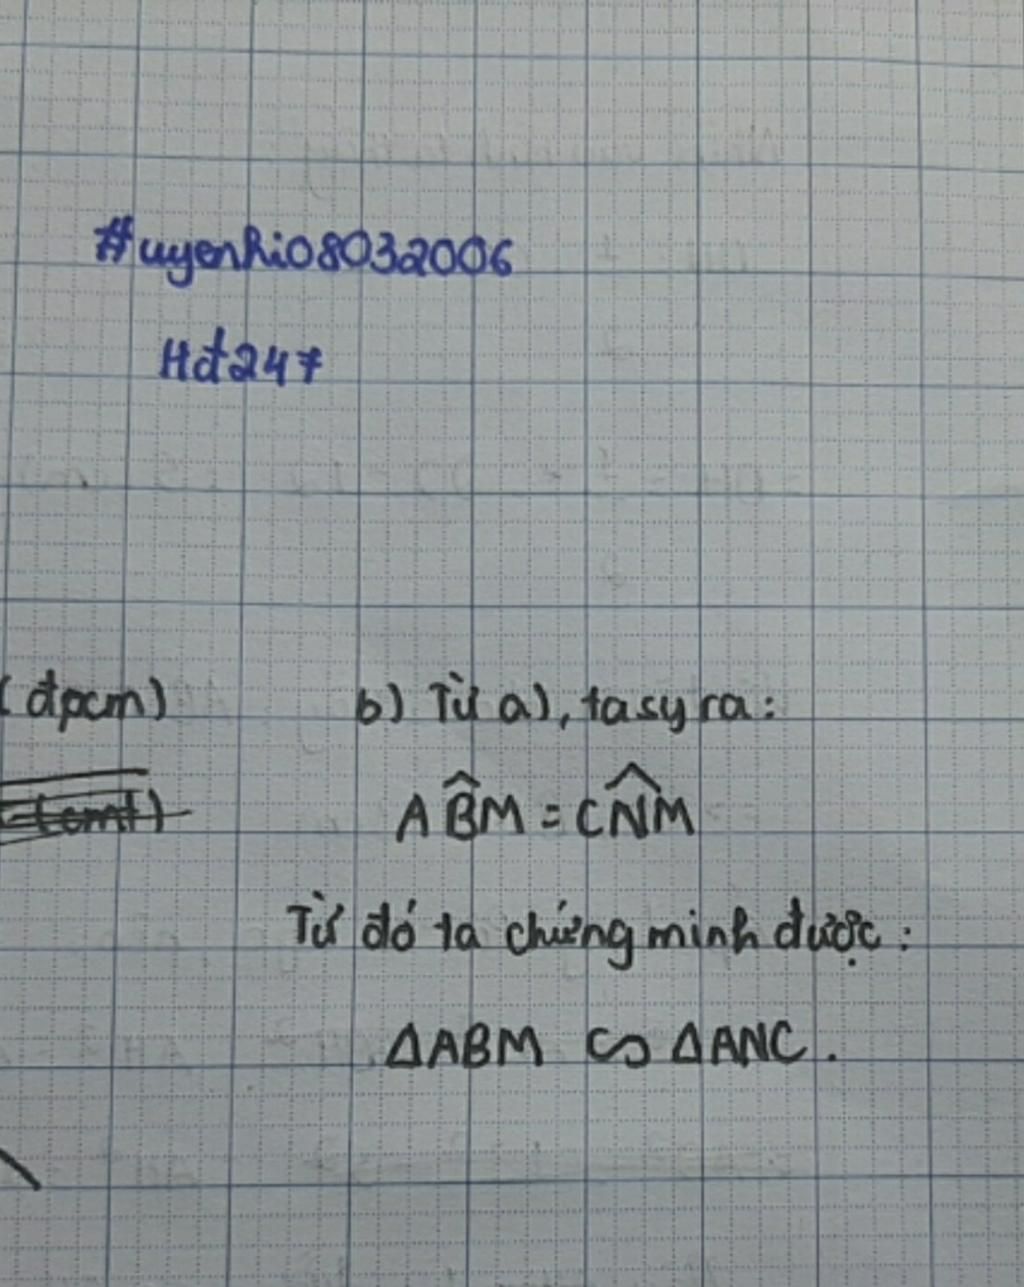 #uyenhi08032006
Hđ247
(đpcm)
b) Từ a), ta suy ra:
A\widehat{B}M = C\widehat{N}M
Từ đó ta chứng minh được:
ΔABM ∽ ΔANC.